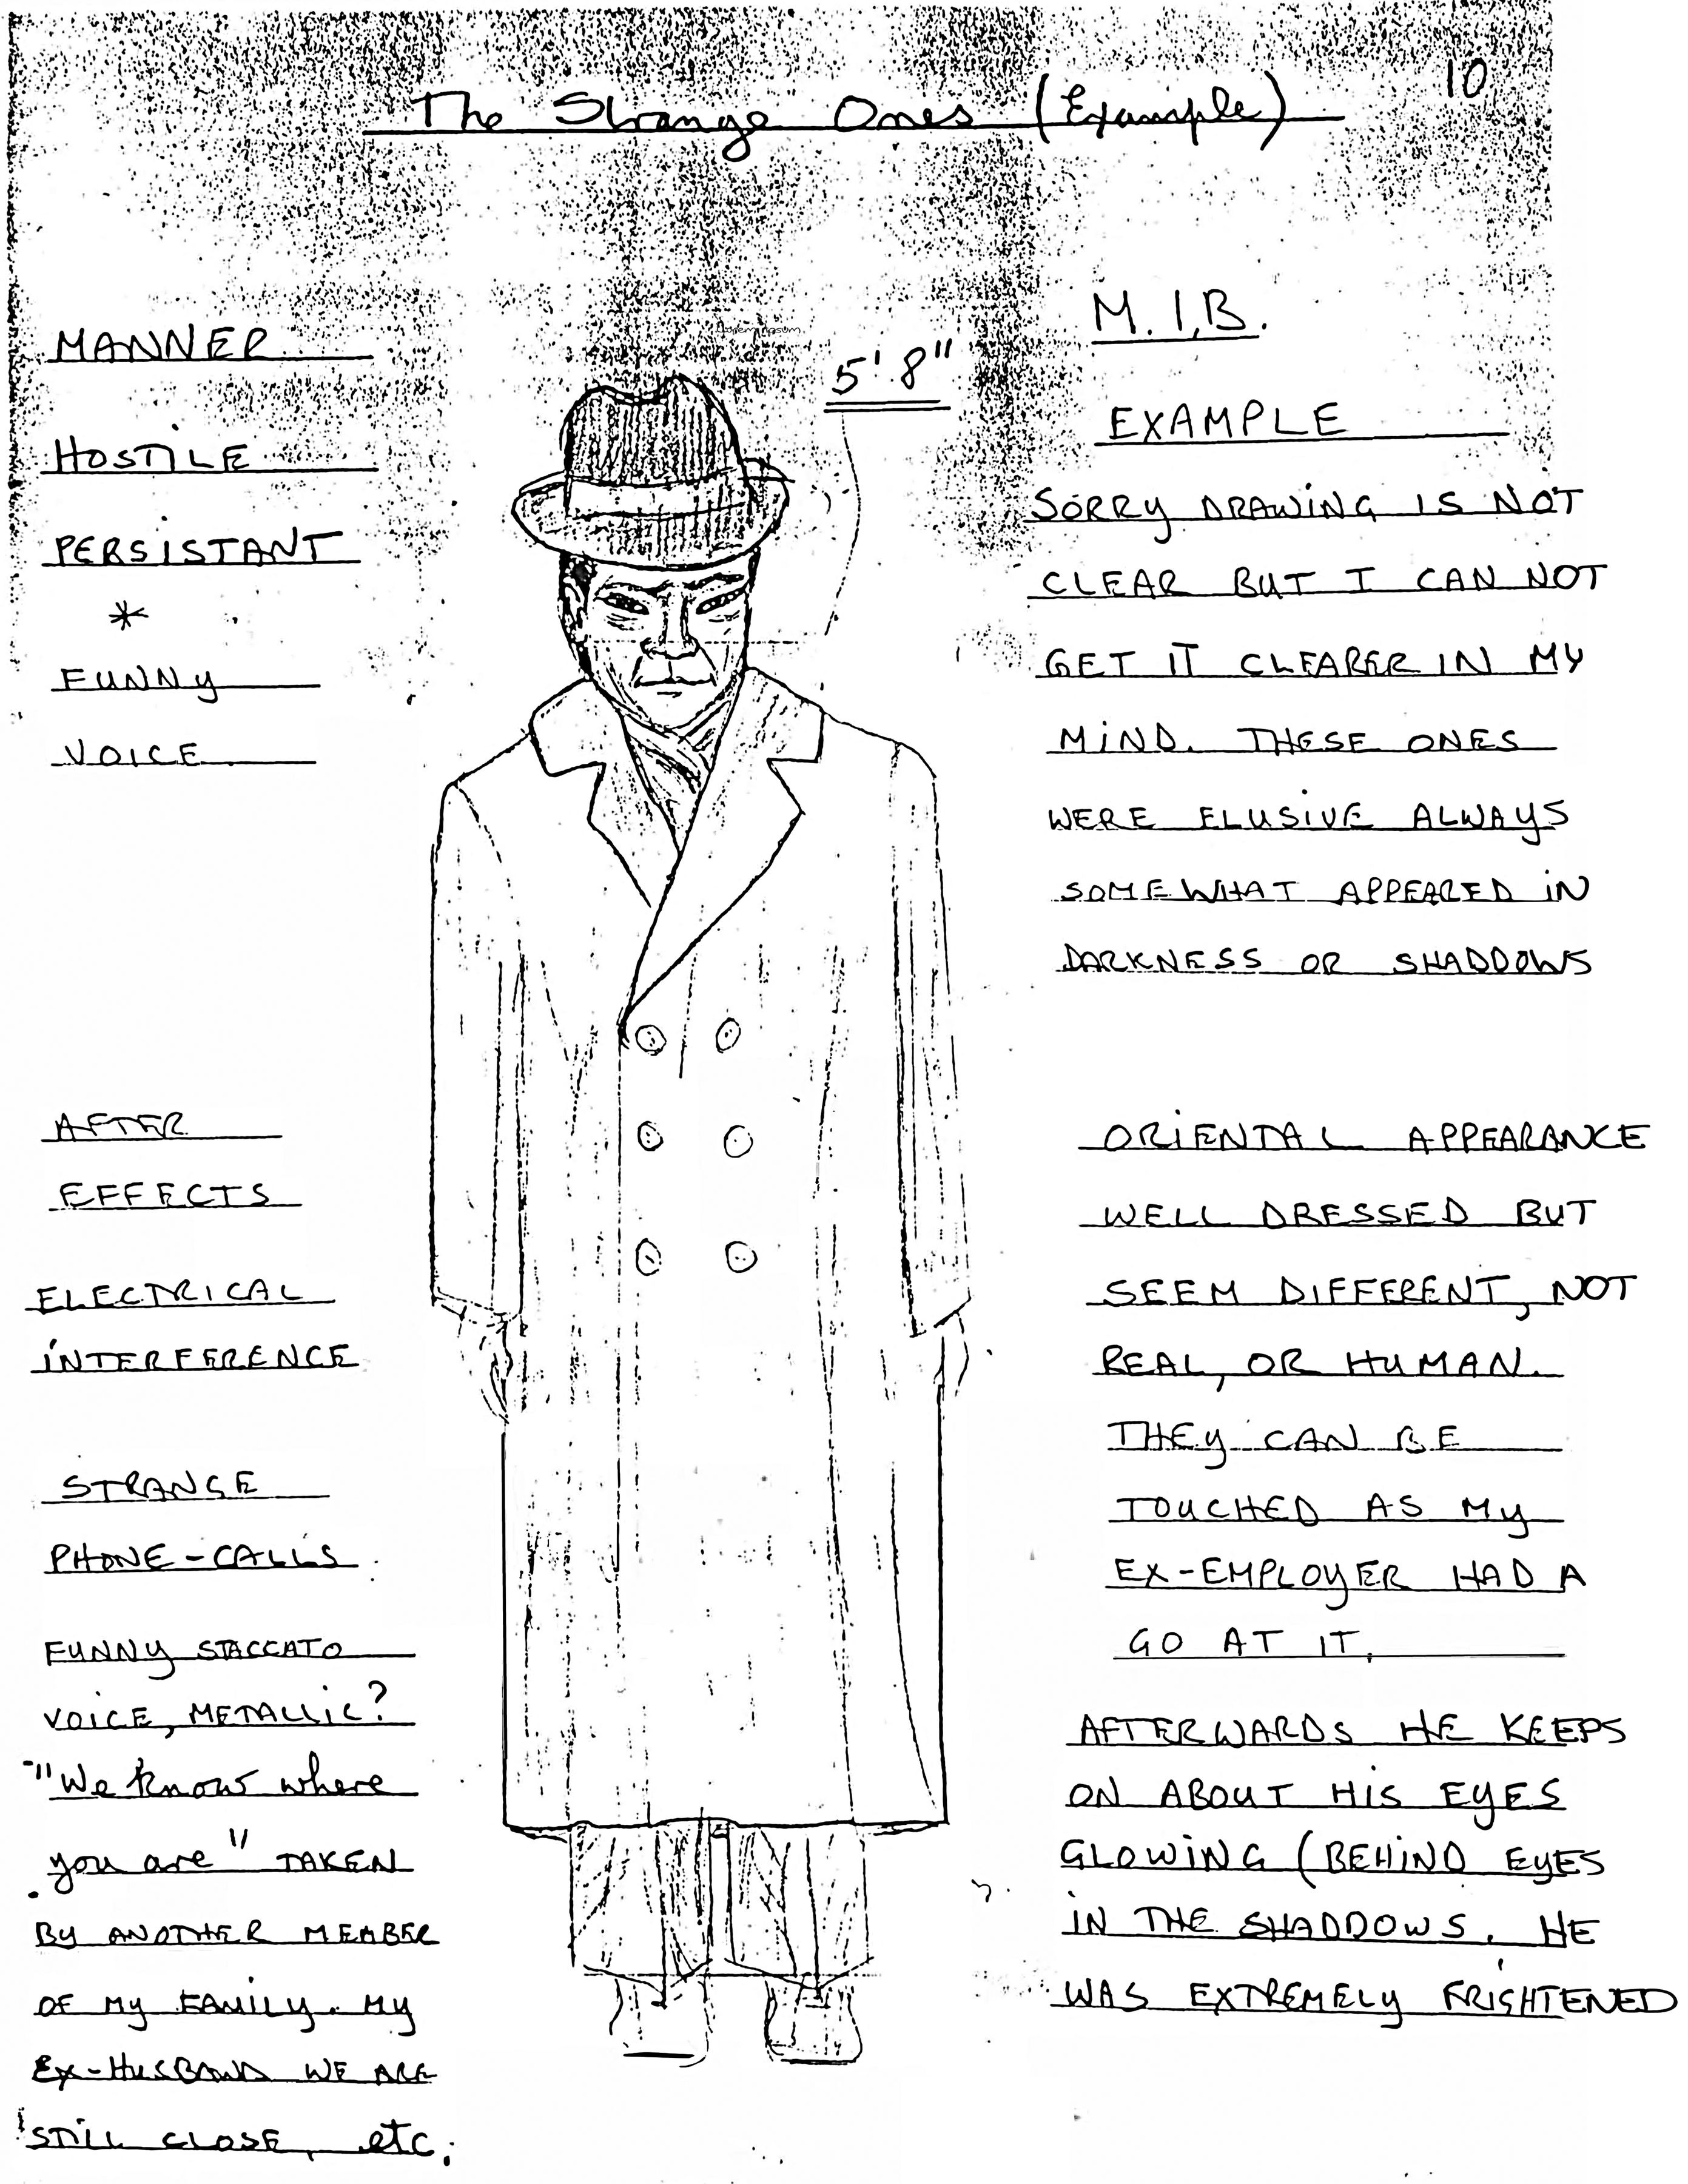 10
The Strange Ones (Example)
MANNER
HOSTILE
PERSISTANT
*
FUNNY
VOICE
AFTER
EFFECTS
ELECTRICAL
INTERFERENCE
STRANGE
PHONE-CALLS
FUNNY STACCATO
VOICE, METALLIC?
"We know where
you are" TAKEN
BY ANOTHER MEMBER
OF MY FAMILY. MY
EX-HUSBAND WE ARE
STILL CLOSE, etc.
5'8"
M.I.B.
EXAMPLE
SORRY DRAWING IS NOT
CLEAR BUT I CAN NOT
GET IT CLEARER IN MY
MIND. THESE ONES
WERE ELUSIVE ALWAYS
SOMEWHAT APPEARED IN
DARKNESS OR SHADDOWS
ORIENTAL APPEARANCE
WELL DRESSED BUT
SEEM DIFFERENT, NOT
REAL, OR HUMAN.
THEY CAN BE
TOUCHED AS MY
EX-EMPLOYER HAD A
GO AT IT,
AFTERWARDS HE KEEPS
ON ABOUT HIS EYES
GLOWING (BEHIND EYES
IN THE SHADDOWS. HE
WAS EXTREMELY FRIGHTENED